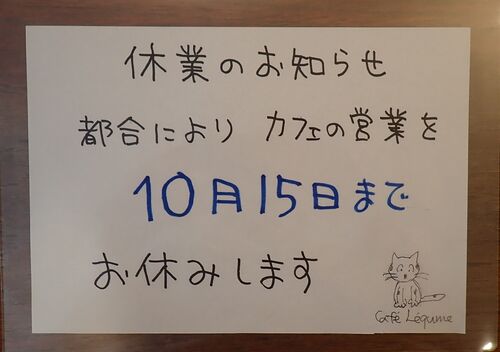 休業のお知らせ
都合により カフェの営業を
10月15日まで
お休みします
Café Légume